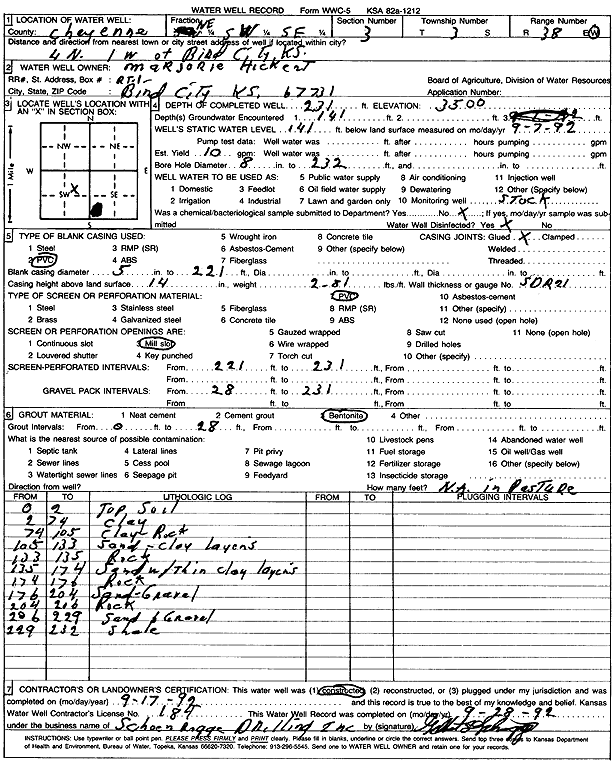 WATER WELL RECORD Form WWC-5 KSA 82a-1212
1 LOCATION OF WATER WELL: Fraction Section Number Township Number Range Number
County: Cheyenne NE SW SE 3 T 3 S R 38 E W
Distance and direction from nearest town or city street address of well if located within city?
4 N. 1 W of Bird City KS.
2 WATER WELL OWNER: Marjorie Hickert
RR#, St. Address, Box # : RT.1- Board of Agriculture, Division of Water Resources
City, State, ZIP Code : Bird City KS. 67731 Application Number:
3 LOCATE WELL'S LOCATION WITH AN "X" IN SECTION BOX:
N
NW NE
W E
SW SE
X
S
1 Mile
4 DEPTH OF COMPLETED WELL 231 ft. ELEVATION: 3500
Depth(s) Groundwater Encountered 1. 141 ft. 2. ft. 3.
WELL'S STATIC WATER LEVEL 141 ft. below land surface measured on mo/day/yr 9-7-92
Pump test data: Well water was ft. after hours pumping gpm
Est. Yield 10 gpm: Well water was ft. after hours pumping gpm
Bore Hole Diameter 8 in. to 232 ft., and in. to ft.
WELL WATER TO BE USED AS: 5 Public water supply 8 Air conditioning 11 Injection well
1 Domestic 3 Feedlot 6 Oil field water supply 9 Dewatering 12 Other (Specify below)
2 Irrigation 4 Industrial 7 Lawn and garden only 10 Monitoring well STOCK
Was a chemical/bacteriological sample submitted to Department? Yes No X ; If yes, mo/day/yr sample was sub-
mitted Water Well Disinfected? Yes X No
5 TYPE OF BLANK CASING USED: 5 Wrought iron 8 Concrete tile CASING JOINTS: Glued X Clamped
1 Steel 3 RMP (SR) 6 Asbestos-Cement 9 Other (specify below) Welded
2 PVC 4 ABS 7 Fiberglass Threaded
Blank casing diameter 5 in. to 221 ft., Dia in. to ft., Dia in. to ft.
Casing height above land surface 14 in., weight 2-81 lbs./ft. Wall thickness or gauge No. SDR21
TYPE OF SCREEN OR PERFORATION MATERIAL: 7 PVC 10 Asbestos-cement
1 Steel 3 Stainless steel 5 Fiberglass 8 RMP (SR) 11 Other (specify)
2 Brass 4 Galvanized steel 6 Concrete tile 9 ABS 12 None used (open hole)
SCREEN OR PERFORATION OPENINGS ARE: 5 Gauzed wrapped 8 Saw cut 11 None (open hole)
1 Continuous slot 3 Mill slot 6 Wire wrapped 9 Drilled holes
2 Louvered shutter 4 Key punched 7 Torch cut 10 Other (specify)
SCREEN-PERFORATED INTERVALS: From 221 ft. to 231 ft., From ft. to ft.
From ft. to ft., From ft. to ft.
GRAVEL PACK INTERVALS: From 28 ft. to 231 ft., From ft. to ft.
From ft. to ft., From ft. to ft.
6 GROUT MATERIAL: 1 Neat cement 2 Cement grout 3 Bentonite 4 Other
Grout Intervals: From 0 ft. to 28 ft., From ft. to ft., From ft. to ft.
What is the nearest source of possible contamination: 10 Livestock pens 14 Abandoned water well
1 Septic tank 4 Lateral lines 7 Pit privy 11 Fuel storage 15 Oil well/Gas well
2 Sewer lines 5 Cess pool 8 Sewage lagoon 12 Fertilizer storage 16 Other (specify below)
3 Watertight sewer lines 6 Seepage pit 9 Feedyard 13 Insecticide storage
Direction from well? How many feet? N.A. in Pasture
FROM TO LITHOLOGIC LOG FROM TO PLUGGING INTERVALS
0 2 Top Soil
2 74 Clay
74 105 Clay-Rock
105 133 Sand-Clay layers
133 135 Rock
135 174 Sand w/Thin clay layers
174 176 Rock
176 204 Sand-Gravel
204 206 Rock
206 229 Sand & Gravel
229 232 Shale
7 CONTRACTOR'S OR LANDOWNER'S CERTIFICATION: This water well was (1) constructed, (2) reconstructed, or (3) plugged under my jurisdiction and was
completed on (mo/day/year) 9-17-92 and this record is true to the best of my knowledge and belief. Kansas
Water Well Contractor's License No. 184 This Water Well Record was completed on (mo/day/yr) 9-28-92
under the business name of Schoenrogge Drilling Inc by (signature)
INSTRUCTIONS: Use typewriter or ball point pen. PLEASE PRESS FIRMLY and PRINT clearly. Please fill in blanks, underline or circle the correct answers. Send top three copies to Kansas Department
of Health and Environment, Bureau of Water, Topeka, Kansas 66620-7320. Telephone: 913-296-5545. Send one to WATER WELL OWNER and retain one for your records.